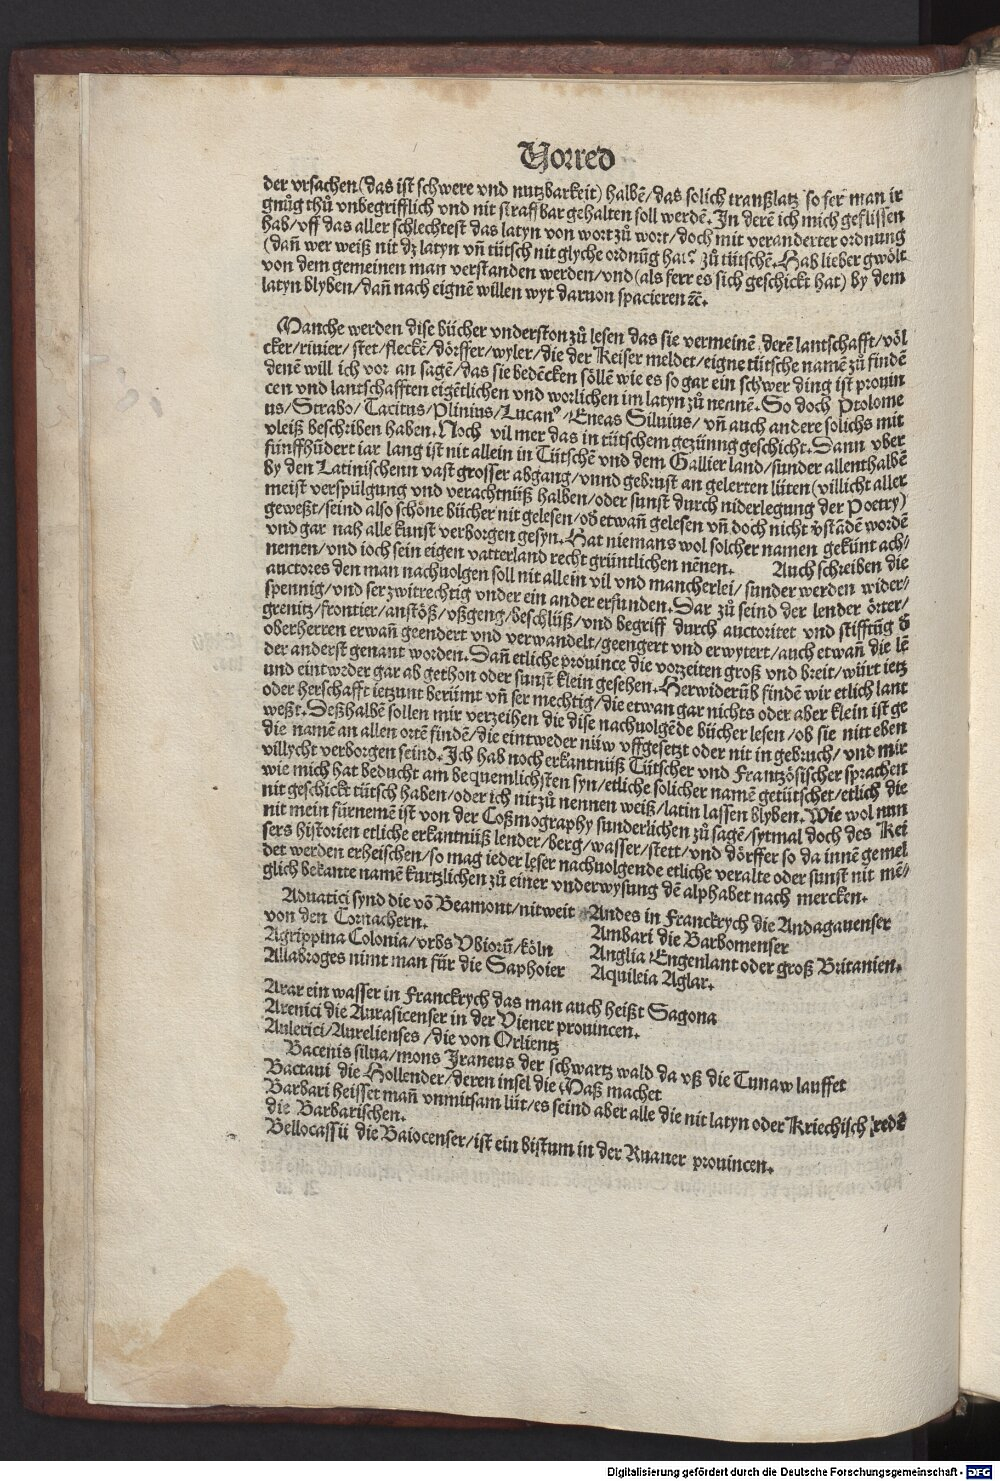 Vorred
der vrsachen (das ist schwere vnd nutzbarkeit) halbē/das solich transzlatz so fer man ir
gnůg thů vnbegrifflich vnd nit straffbar gehalten soll werdē. In derē ich mich geflissen
hab/vff das aller schlechtest das latyn von wort zů wort/doch mit veranderter ordnung
(dañ wer weiß nit dz latyn vñ tütsch nit glyche ordnūg hat) zů tütschē. Hab lieber gwölt
von dem gemeinen man verstanden werden/vnd (als ferr es sich geschickt hat) by dem
latyn blyben/dañ nach eignē willen wyt daruon spacieren ꝛc.
Manche werden dise bücher vnderston zů lesen das sie vermeinē derē lantschafft/völ
cker/riuier/stet/fleckē/dörffer/wyler/die der Keiser meldet/eigne tütsche namē zů findē
denē will ich vor an sagē/das sie bedēcken söllē wie es so gar ein schwer ding ist prouin
cen vnd lantschafften eigētlichen vnd worlichen im latyn zů nennē. So doch Ptolome
us/Strabo/Tacitus/Plinius/Lucanꝰ/Eneas Siluius/vñ auch andere solichs mit
vleiß beschriben haben. Noch vil mer das in tütschem gezünng geschicht. Dann vber
fünffhūdert iar lang ist nit allein in Tütschē vnd dem Gallier land/sunder allenthalbē
by den Latinischenn vast grosser abgang/vnnd gebrust an gelerten lüten (villicht aller
meist verspülgung vnd verachtnüß halben/oder sunst durch niderlegung der Poetry)
geweßt/seind also schöne bücher nit gelesen/ob etwañ gelesen vñ doch nicht v̄stādē wordē
vnd gar nah alle kunst verborgen gesyn. Hat niemans wol solcher namen gekünt ach/
nemen/vnd ioch sein eigen vatterland recht grüntlichen nēnen. Auch schreiben die
auctores den man nachuolgen soll nit allein vil vnd mancherlei/sunder werden wider/
spennig/vnd ser zwitrechtig vnder ein ander erfunden. Dar zů seind der lender örter/
grenitz/frontier/anstöß/vßgeng/beschlüß/vnd begriff durch auctoritet vnd stifftūg d̄
oberherren erwañ geendert vnd verwandelt/geengert vnd erwytert/auch etwañ die lē
der anderst genant worden. Dañ etliche prouince die vorzeiten groß vnd breit/würt ietz
und eintwrder gar ab gethon oder sunst klein gesehen. Herwiderūb findē wir etlich lant
oder herschafft ietzunt berümt vñ ser mechtig/die etwan gar nichts oder aber klein ist ge
weßt. Deßhalbē sollen mir verzeihen die dise nachuolgēde bücher lesen/ob sie nitt eben
die namē an allen ortē findē/die eintweder nüw vffgesetzt oder nit in gebruch/vnd mir
villycht verborgen seind. Ich hab noch erkantnüß Tütscher vnd Frantzösischer sprachen
wie mich hat beducht am bequemlichsten syn/etliche solicher namē getütschet/etlich die
nit geschickt tütsch haben/oder ich nit zů nennen weiß/latin lassen blyben. Wie wol nun
nit mein fürnemē ist von der Coßmography sunderlichen zů sagē/sytmal doch des Kei
sers historien etliche erkantnüß lender/berg/wasser/stett/vnd dörffer so da innē gemel
det werden erheischen/so mag ieder leser nachuolgende etliche veralte oder sunst nit mē/
glich bekante namē kurtzlichen zů einer vnderwysung dē alphabet nach mercken.
Aduatici synd die vō Beamont/nit weit
von den Tornachern.
Agrippina Colonia/vrbs Vbiorū/köln
Allabroges nimt man für die Saphoier
Andes in Franckrych die Andagauenser
Ambari die Barbomenser
Anglia Engenlant oder groß Britanien.
Aquileia Aglar.
Arar ein wasser in Franckrych das man auch heißt Sagona
Arenici die Aurasicenser in der Viener prouincen.
Aulerici/Aurelienses/die von Orlientz
Bacenis silua/mons Iraneus der schwartz wald da vß die Tunaw lauffet
Bactaui die Hollender/deren insel die Maß machet
Barbari heisset mañ vnmitsam lüt/es seind aber alle die nit latyn oder Kriechisch redē
die Barbarischen.
Bellocassii die Baiocenser/ist ein bistum in der Ruaner prouincen.
Digitalisierung gefördert durch die Deutsche Forschungsgemeinschaft - DFG